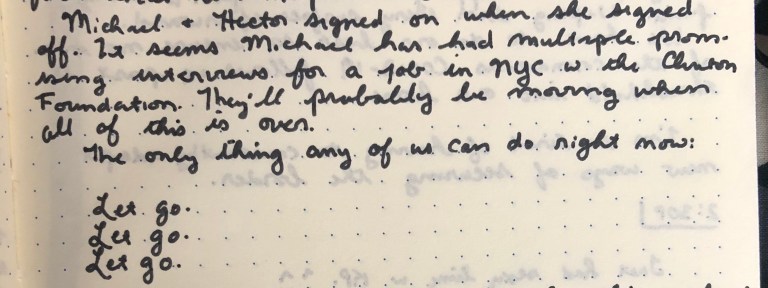 Michael & Hector signed on when she signed
off. It seems Michael has had multiple prom-
ising interviews for a job in NYC w the Clinton
Foundation. They'll probably be moving when
all of this is over.
The only thing any of us can do right now:
Let go.
Let go.
Let go.